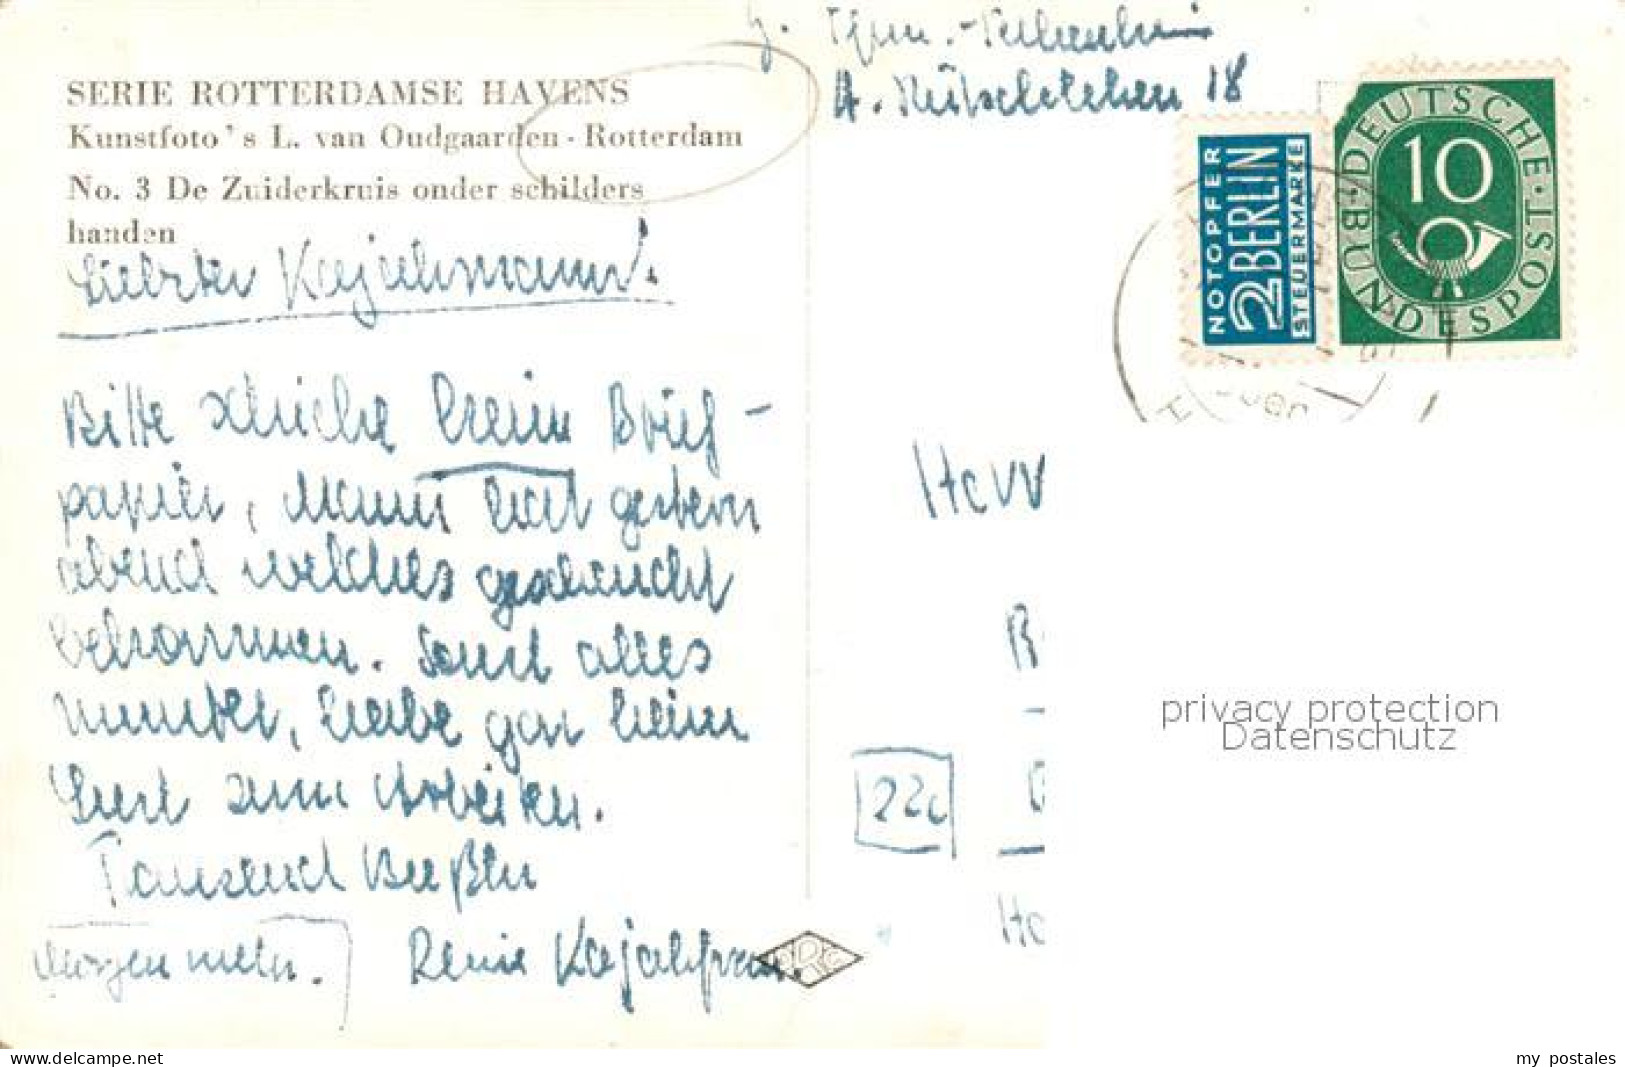 SERIE ROTTERDAMSE HAVENS
Kunstfoto's L. van Oudgaarden - Rotterdam
No. 3 De Zuiderkruis onder schilders
handen
Liebster Kajakmann!
Bitte schicke kein Brief-
papier, Mami hat gestern
abend welches geschenkt
bekommen. Sonst alles
munter, habe gar keine
Lust zum Arbeiten.
Tausend
Morgen mehr.
Deine Kajakfrau.
18
NOTOPFER
2 BERLIN
STEUERMARKE
DEUTSCHE BUNDESPOST
10
Herr
22c
privacy protection
Datenschutz
www.delcampe.net
my_postales